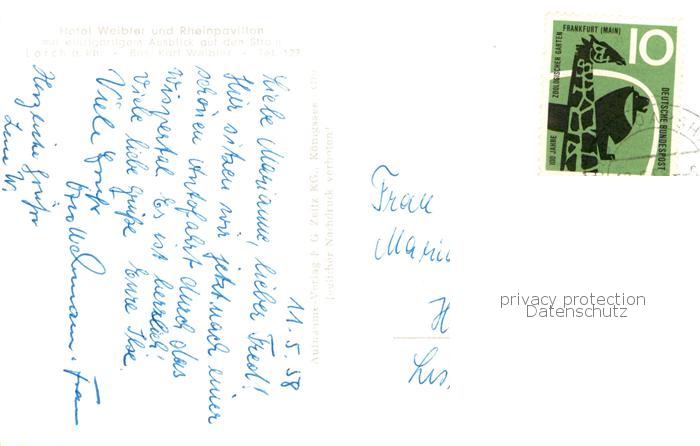 Hotel Weibler und Rheinpavillon
mit einzigartigem Ausblick auf den Strom
Lorch a. Rh. - Bes. Karl Weibler - Tel. 127
11.5.58
Liebe Marianne, lieber Fred!
Hier sitzen wir jetzt nach einer
schönen Autofahrt durch das
Wispertal. Es ist herrlich!
Viele liebe Grüße Eure Ilse.
Viele Grüße
Frau
Herzliche Grüße
Lena W.
Aufnahme-Verlag F. G. Zeitz KG., Königssee
Jeglicher Nachdruck verboten!
100 JAHRE ZOOLOGISCHER GARTEN
FRANKFURT (MAIN)
10
DEUTSCHE BUNDESPOST
Frau
H
privacy protection
Datenschutz